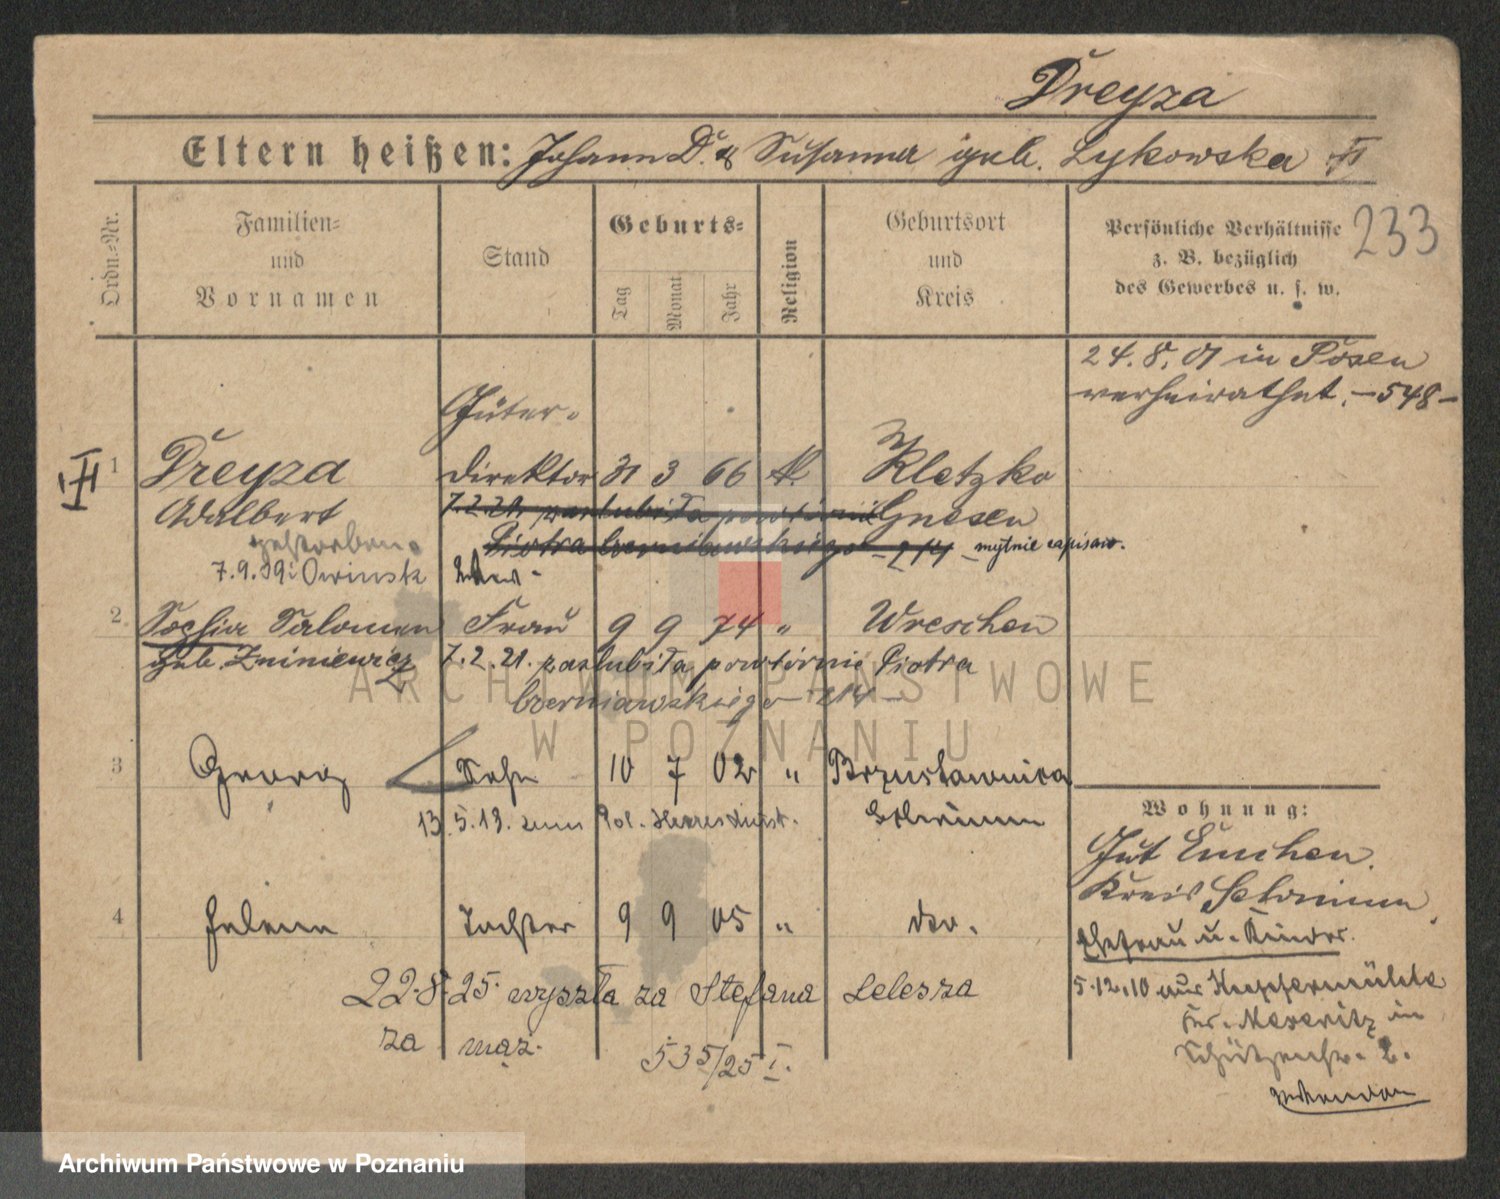 Dreyza
Eltern heißen: Johann D. & Susanna geb. Lykowska II
233
Ordn.-Nr.
Familien- und Vornamen
Stand
Geburts-
Tag
Monat
Jahr
Religion
Geburtsort und Kreis
Persönliche Verhältnisse
z. B. bezüglich
des Gewerbes u. s. w.
24.8.01 in Posen
verheirathet. – 548 –
Güter-
II 1 Dreyza direktor 31 3 66 k. Kletzko
Adalbert 7.2.21. zaslubiła powtórnie Gnesen
Piotra Czerniawskiego – 214 – mylnie zapisano.
gestorben
7.9.19 Owinsk
2. Sophia Salomea Frau 9 9 74 " Wreschen
geb. Zniniewicz 7.2.21. zaslubiła powtórnie Piotra
Czerniawskiego – 214 –
3 Georg Sohn 10 7 02 " Brzustawnica
13.5.19. zum Pol. Heeresdienst. Schrimm
Wohnung:
Gut Luchen.
Kreis Schrimm.
4 Helene Tochter 9 9 05 " do.
Ehefrau u. Kinder.
22.8.25. wyszła za Stefana Lelesza
5.12.10 aus Hopfenmühle
za mąż. 535/25 I.
Krs. Meseritz in
Schützenstr. 2.
ARCHIWUM PAŃSTWOWE
W POZNANIU
Archiwum Państwowe w Poznaniu